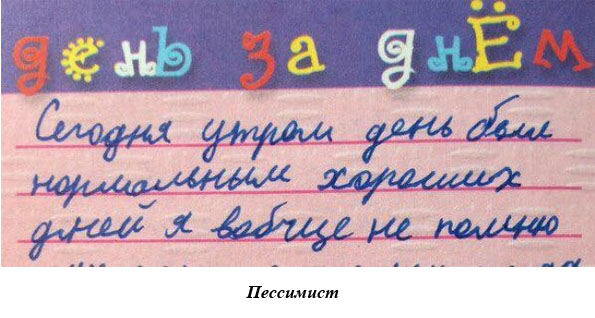 день за днЁм
Сегодня утром день был
нормальным хороших
дней я вобще не помню
Пессимист